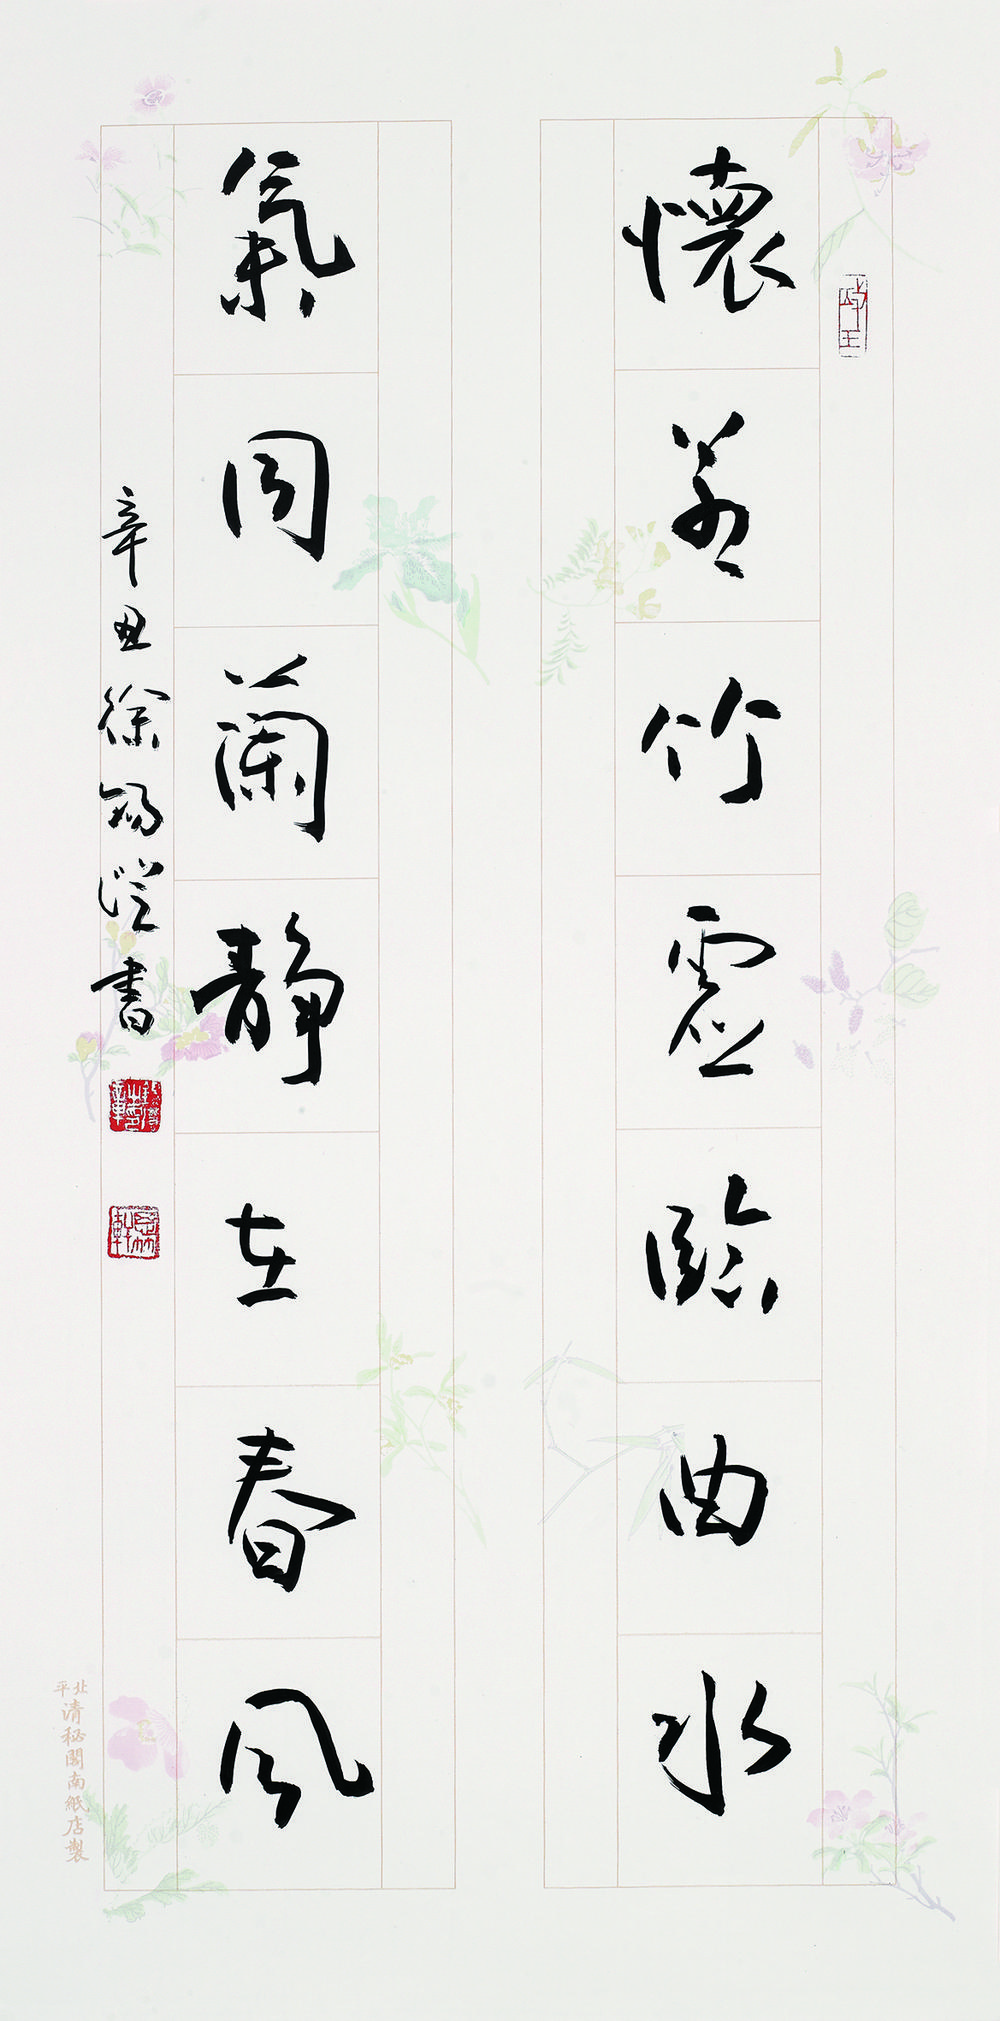 懷若竹虛臨曲水
氣同蘭靜在春風
辛丑徐錫澄書
北平清秘閣南紙店製